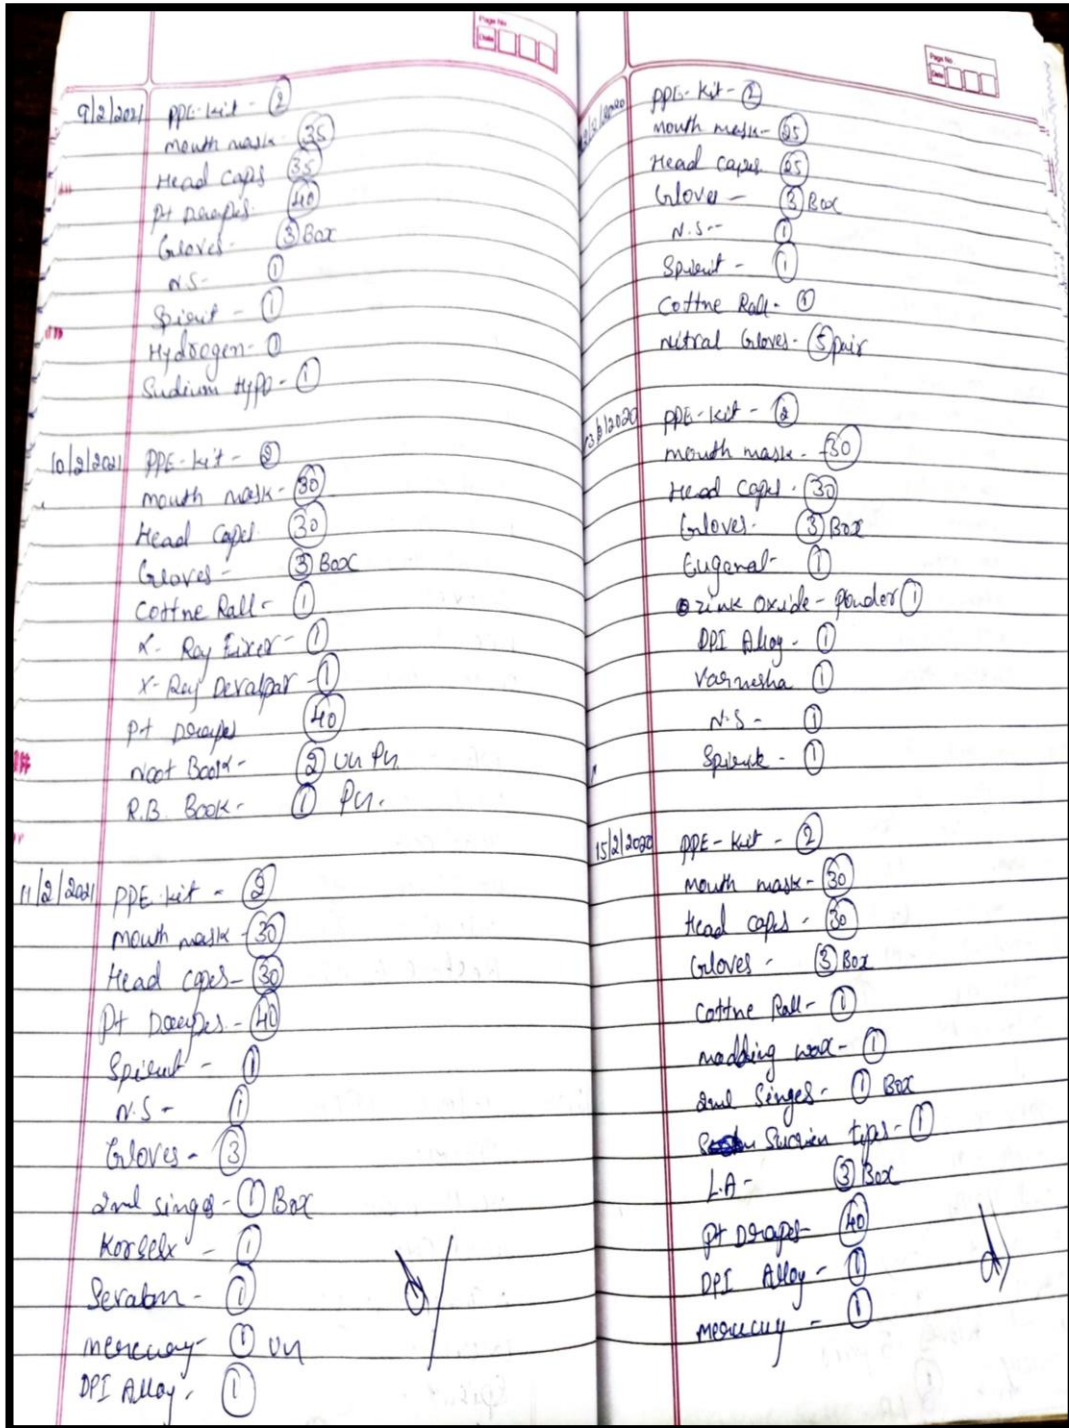 Page No
Date
9/2/2021 PPE-kit - 2
mouth mask - 35
Head caps 35
Pt Drapes 40
Gloves - 3 Box
N.S- 1
Spirit - 1
Hydrogen - 1
Sudium Hypo - 1
10/2/2021 PPE-kit - 2
mouth mask - 30
Head capes 30
Gloves - 3 Box
Cottne Rall - 1
X-Ray Fixer - 1
X-Ray Devalpar - 1
Pt Drapes 40
Noot Book - 2
R.B. Book - 1
11/2/2021 PPE-kit - 2
Mouth mask - 30
Head capes - 30
Pt Drapes - 40
Spirit - 1
N.S - 1
Gloves - 3
2ml singes - 1 Box
Korselx - 1
Mercury - 1
DPI Alloy - 1
Page No
Date
PPE-Kit - 2
Mouth mask - 25
Head capes 25
Gloves - 3 Box
N.S-- 1
Spirit - 1
Cottne Rall - 1
Nitral Gloves - 5 pair
PPE-kit - 2
mouth mask - 30
Head capes - 30
Gloves - 3 Box
Eugenal - 1
zink oxide - Powder 1
DPI Alloy - 1
Varnesha 1
N.S - 1
Spirit - 1
15/2/2020 PPE-Kit - 2
Mouth mask - 30
Head capes - 30
Gloves - 3 Box
Cottne Rall - 1
madling wax - 1
2ml Singes - 1 Box
Sucrien tipes - 1
L.A - 3 Box
Pt Drapes 40
DPI Alloy - 1
Mercury - 1